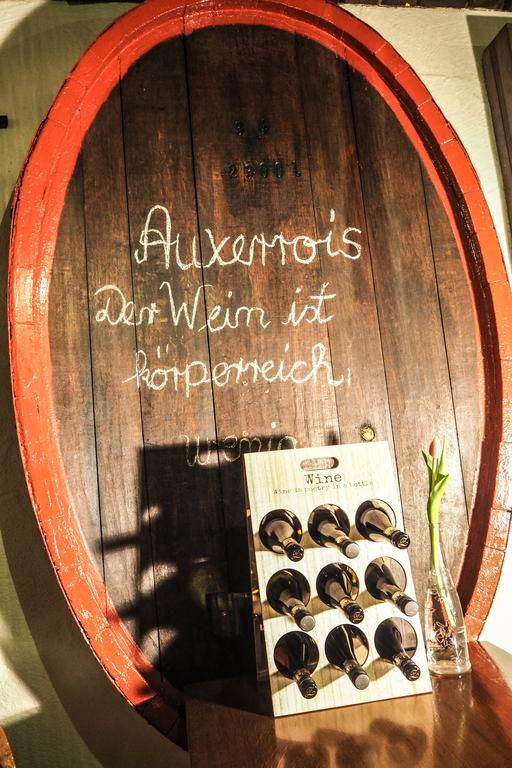 Auxerrois
Der Wein ist
körperreich,
wenig
Wine
Wine is poetry in a bottle